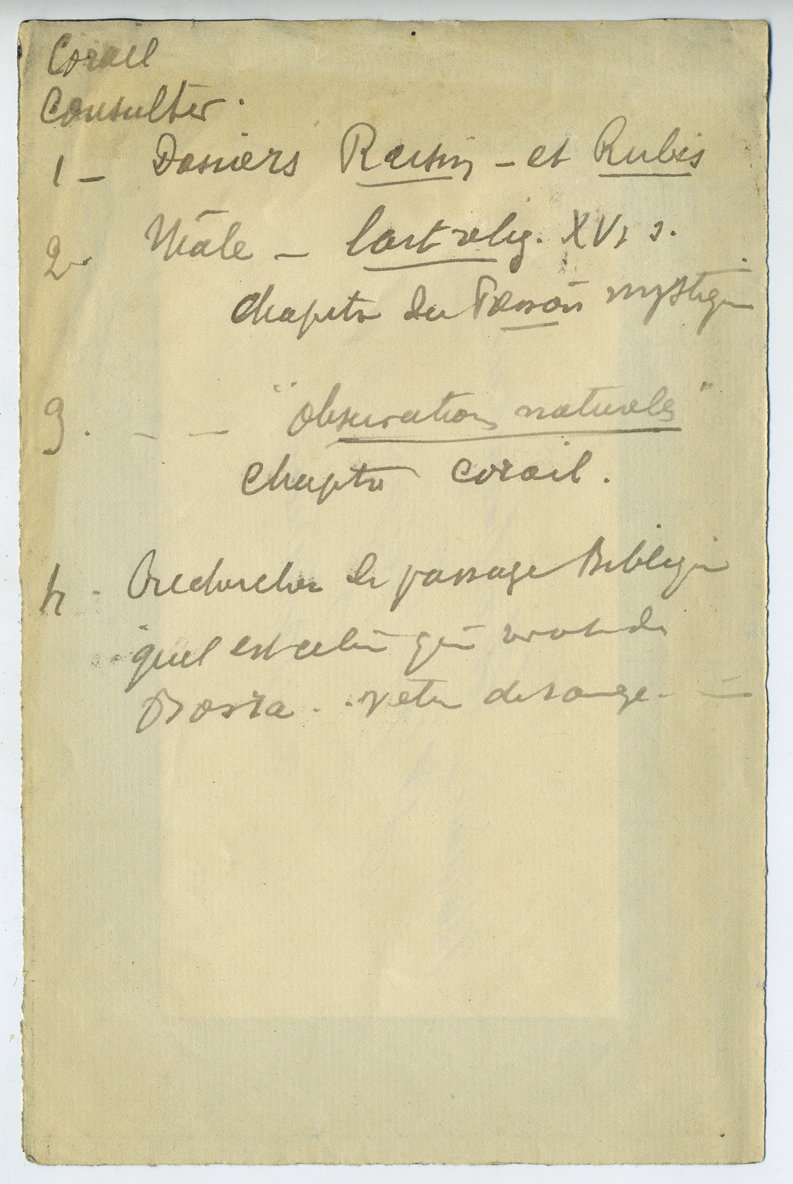 Corail
Consulter.
1 - Dossiers Raisin - et Rubis
2. Mâle - l'art relig. XVI s.
chapitre du Pressoir mystique
3. - - "Observations naturelles"
chapitre corail.
4 - Rechercher le passage Biblique
quel est celui qui vient de
Bosra.. vêtu de rouge. -